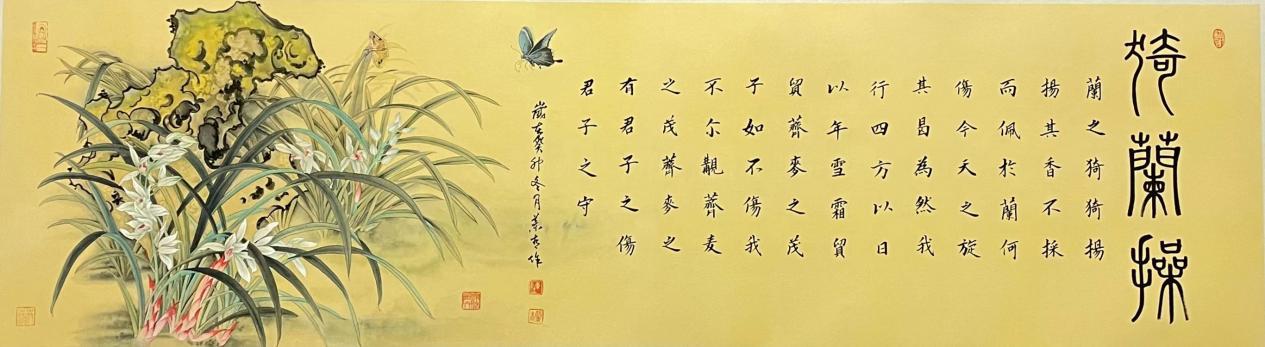 猗蘭操
蘭之猗猗揚
揚其香不採
而佩於蘭何
傷今天之旋
其曷為然我
行四方以日
以年雪霜貿
貿薺麥之茂
子如不傷我
不尔覯薺麦
之茂薺麥之
有君子之傷
君子之守
歲在癸卯冬月作